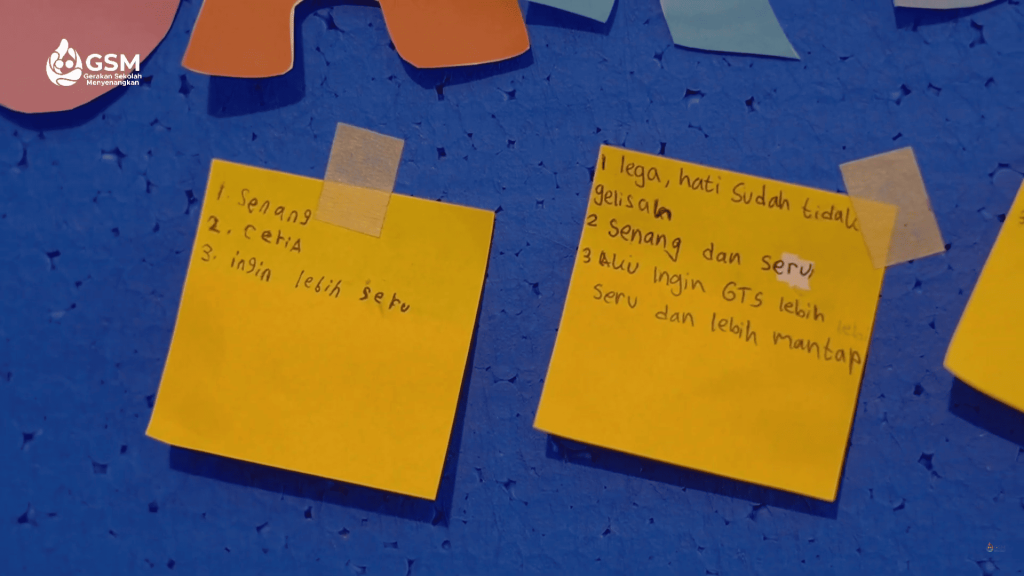 GSM
Gerakan Sekolah
Menyenangkan
1. Senang
2. ceria
3. ingin lebih seru
1 lega, hati Sudah tidak
gelisah
2 Senang dan seru,
3 Aku Ingin GTS lebih
seru dan lebih mantap